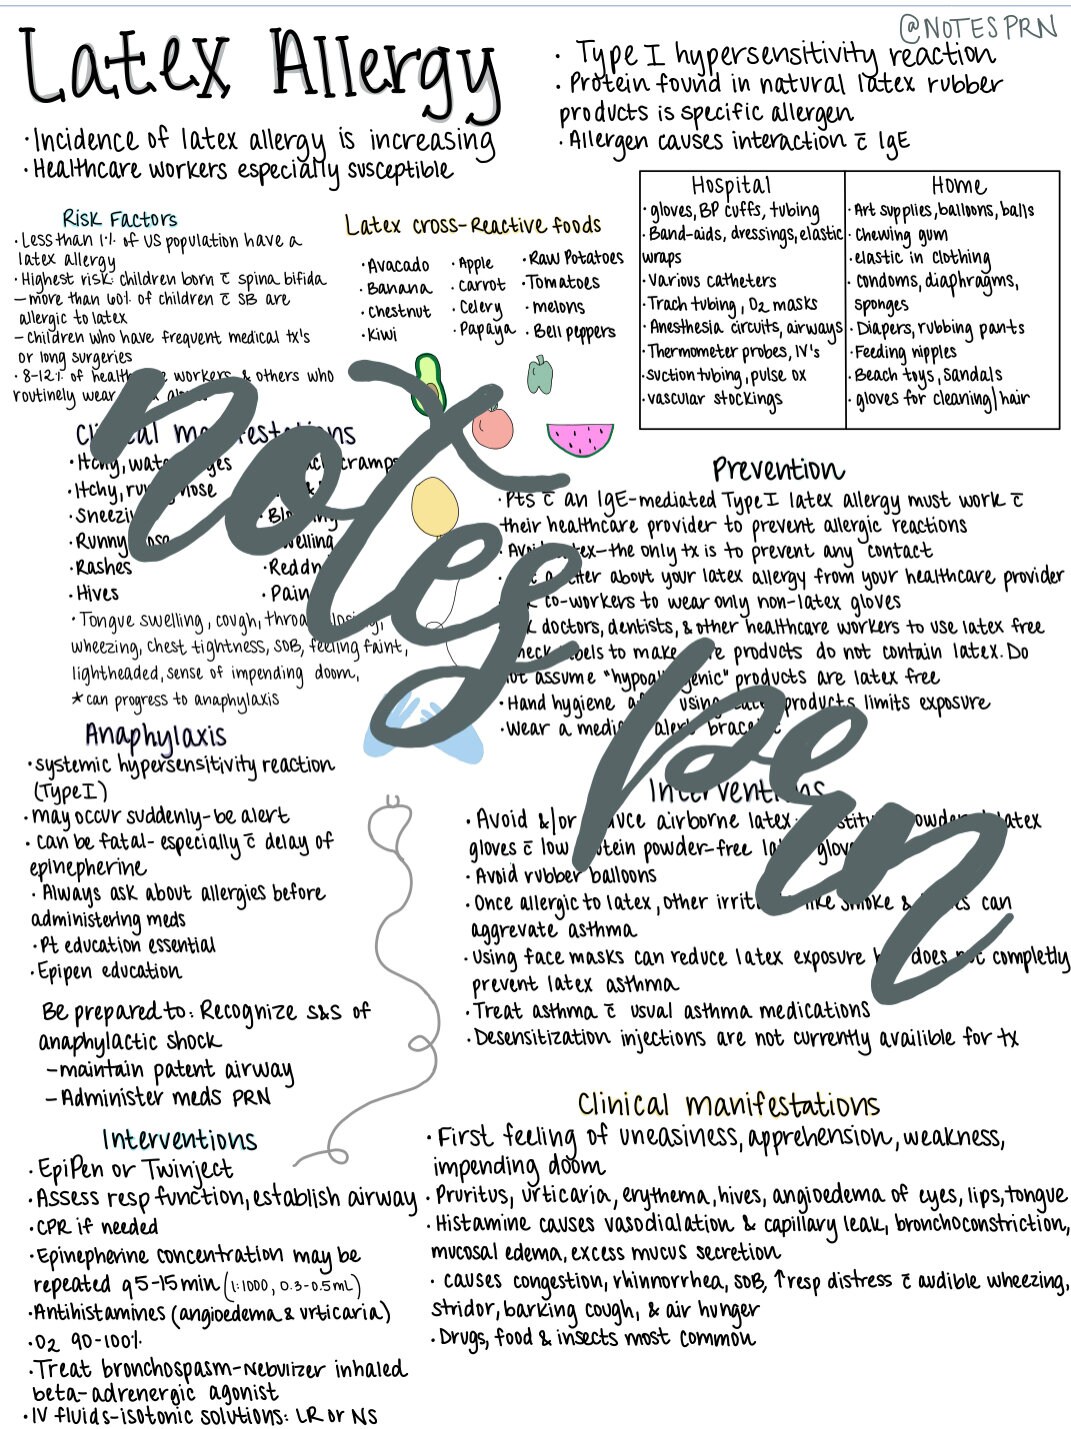 @NOTESPRN
Latex Allergy
· Incidence of latex allergy is increasing
· Healthcare workers especially susceptible
· Type I hypersensitivity reaction
· Protein found in natural latex rubber
products is specific allergen
· Allergen causes interaction c̄ IgE
Risk Factors
· Less than 1% of US population have a
latex allergy
· Highest risk: children born c̄ spina bifida
– more than 60% of children c̄ SB are
allergic to latex
– Children who have frequent medical tx's
or long surgeries
· 8-12% of workers & others who
routinely wear
Latex cross-Reactive foods
· Avacado
· Banana
· chestnut
· Kiwi
· Apple
· carrot
· Celery
· Papaya
· Raw Potatoes
· Tomatoes
· melons
· Bell peppers
Hospital
· gloves, BP cuffs, tubing
· Band-aids, dressings, elastic
wraps
· Various catheters
· Trach tubing, O2 masks
· Anesthesia circuits, airways
· Thermometer probes, IV's
· suction tubing, pulse ox
· vascular stockings
Home
· Art supplies, balloons, balls
· Chewing gum
· elastic in clothing
· condoms, diaphragms,
sponges
· Diapers, rubbing pants
· Feeding nipples
· Beach toys, Sandals
· gloves for cleaning/hair
Clinical manifestations
· Itchy, watery eyes
· Itchy, runny nose
· Sneezing
· Runny nose
· Rashes
· Hives
cramps
swelling
· Pain
· Tongue swelling, cough, throat closing,
wheezing, chest tightness, SOB, feeling faint,
lightheaded, sense of impending doom,
* can progress to anaphylaxis
notes prn
Prevention
· Pts c̄ an IgE-mediated Type I latex allergy must work c̄
their healthcare provider to prevent allergic reactions
· Avoid latex – the only tx is to prevent any contact
a letter about your latex allergy from your healthcare provider
co-workers to wear only non-latex gloves
doctors, dentists, & other healthcare workers to use latex free
check labels to make sure products do not contain latex. Do
not assume "hypoallergenic" products are latex free
· Hand hygiene using latex products limits exposure
· Wear a medical alert bracelet
Anaphylaxis
· systemic hypersensitivity reaction
(Type I)
· may occur suddenly - be alert
· can be fatal - especially c̄ delay of
epinepherine
· Always ask about allergies before
administering meds
· Pt education essential
· Epipen education
Be prepared to: Recognize s&s of
anaphylactic shock
– maintain patent airway
– Administer meds PRN
Interventions
· Avoid &/or reduce airborne latex: powdered latex
gloves c̄ low protein powder-free latex gloves
· Avoid rubber balloons
· Once allergic to latex, other irritants like smoke & can
aggrevate asthma
· Using face masks can reduce latex exposure but does not completly
prevent latex asthma
· Treat asthma c̄ usual asthma medications
· Desensitization injections are not currently availible for tx
Interventions
· EpiPen or Twinject
· Assess resp function, establish airway
· CPR if needed
· Epinepherine concentration may be
repeated q5-15min (1:1000, 0.3-0.5mL)
· Antihistamines (angioedema & urticaria)
· O2 90-100%
· Treat bronchospasm-Nebulizer inhaled
beta-adrenergic agonist
· IV fluids-isotonic solutions: LR or NS
Clinical manifestations
· First feeling of uneasiness, apprehension, weakness,
impending doom
· Pruritus, urticaria, erythema, hives, angioedema of eyes, lips, tongue
· Histamine causes vasodialation & capillary leak, bronchoconstriction,
mucosal edema, excess mucus secretion
· causes congestion, rhinnorrhea, SOB, ↑resp distress c̄ audible wheezing,
stridor, barking cough, & air hunger
· Drugs, food & insects most common